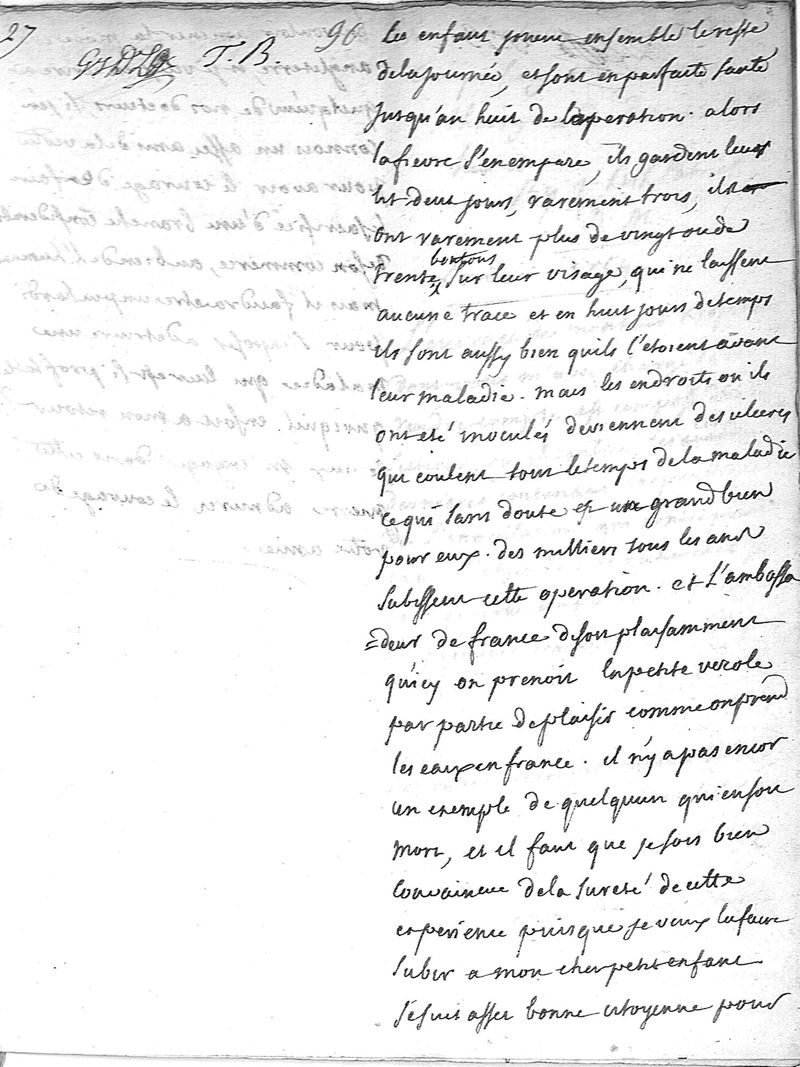 27
T. B. 96
les enfans jouent ensemble le reste
de la journée, et sont en parfaite santé
jusqu'au huit de l'operation. alors
la fievre s'en empare, ils gardent leurs
lit deux jours, rarement trois, ils
ont rarement plus de vingt ou de
boutons
trente sur leur visage, qui ne laissent
aucune trace et en huit jours de temps
ils sont aussy bien quils l'etoient avant
leur maladie. mais les endroits ou ils
ont eté inoculés deviennent des ulceres
qui coulent tout le temps de la maladie
ce qui sans doute est un grand bien
pour eux. des milliers tous les ans
subissent cette operation. et L'ambassa
=deur de france disoit plaisamment
qu'icy on prenoit la petite verole
par partie de plaisir comme on prend
les eaux en france. il n'y a pas encor
un exemple de quelqu'un qui en soit
mort, et il faut que je sois bien
convaincue de la sureté de cette
experience puisque je veux la faire
subir a mon cher petit enfant
je suis assez bonne citoyenne pour